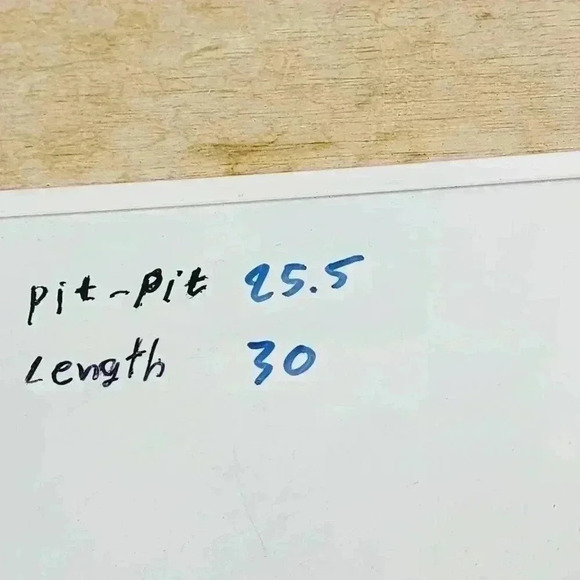 pit-pit 25.5
Length 30